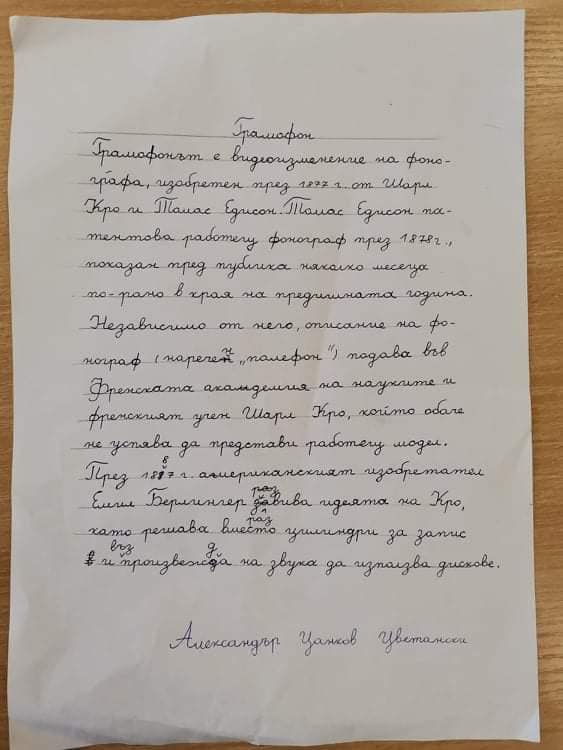 Грамофон
Грамофонът е видеоизменение на фоно-
графа, изобретен през 1877 г. от Шарл
Кро и Томас Едисон. Томас Едисон па-
тентова работещ фонограф през 1878 г.,
показан пред публика няколко месеца
по-рано в края на предишната година.
Независимо от него, описание на фо-
нограф (наречен „палефон“) подава във
Френската академия на науките и
френският учен Шарл Кро, който обаче
не успява да представи работещ модел.
През 1887 г. американският изобретател
Емил Берлингер развива идеята на Кро,
като решава вместо цилиндри за запис
и възпроизвежда на звука да използва дискове.
Александър Цанков Цветански